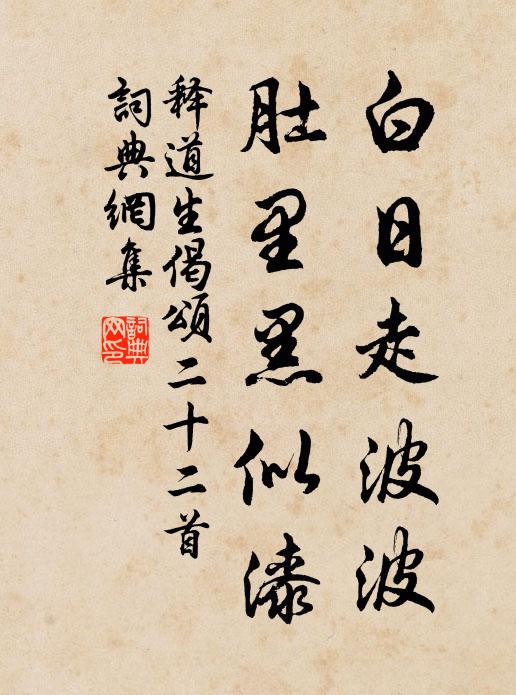 白日走波波
肚里黑似漆
释道生偈頌二十二首
詞典網集
詞典
网印